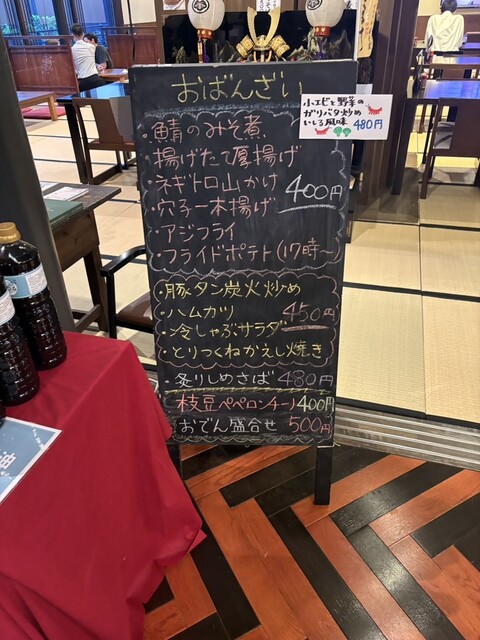 おばんざい
・鯖のみそ煮
・揚げたて厚揚げ
・ネギトロ山かけ
・穴子一本揚げ
400円
・アジフライ
・フライドポテト(17時〜)
・豚タン炭火炒め
・ハムカツ
450円
・冷しゃぶサラダ
・とりつくねかえし焼き
炙りしめさば 480円
枝豆ペペロンチーノ 400円
おでん盛合せ 500円
小エビと野菜の
ガリバタ炒め
いしる風味 480円
油